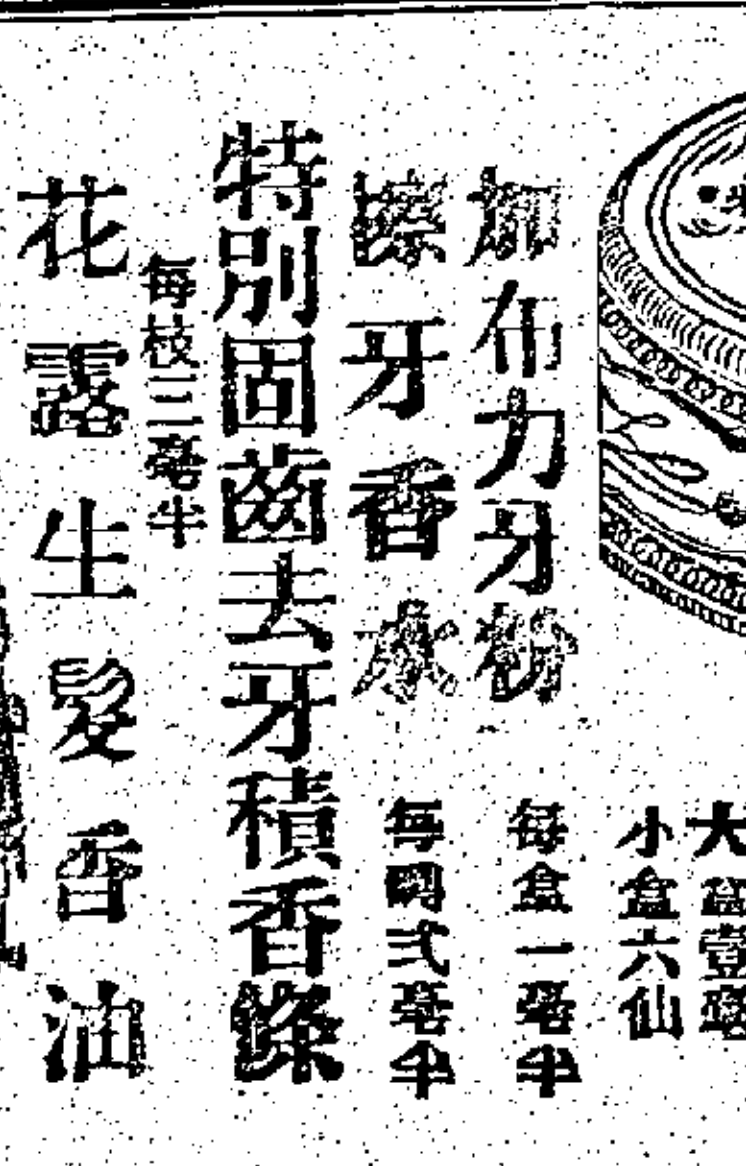 大盒壹毫
小盒六仙
加布力牙粉
每盒一毫半
擦牙香水
每弍毫半
特別固齒去牙積香
每枝三毫半
花露生髮香油